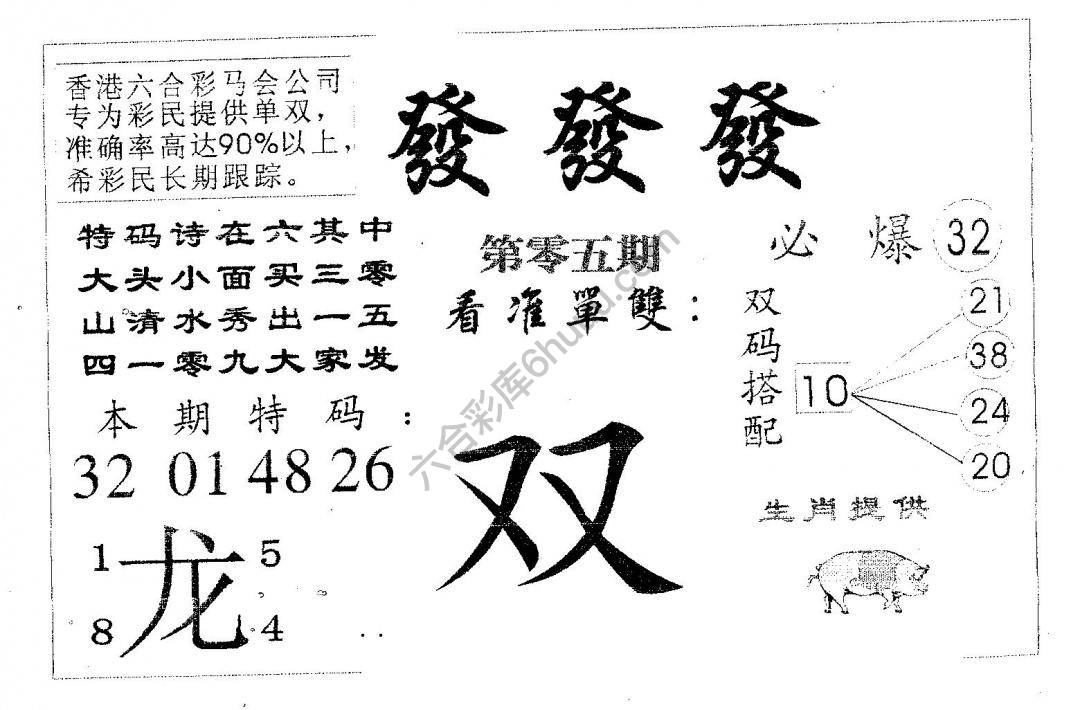 香港六合彩马会公司
专为彩民提供单双，
准确率高达90%以上，
希彩民长期跟踪。
發 發 發
特码诗在六其中
大头小面买三零
山清水秀出一五
四一零九大家发
第零五期
看准單雙：
必 爆 32
双码搭配
10
21
38
24
20
本期特码：
32 01 48 26
双
生肖提供
1 5
龙
8 4
六合彩库6huku.com